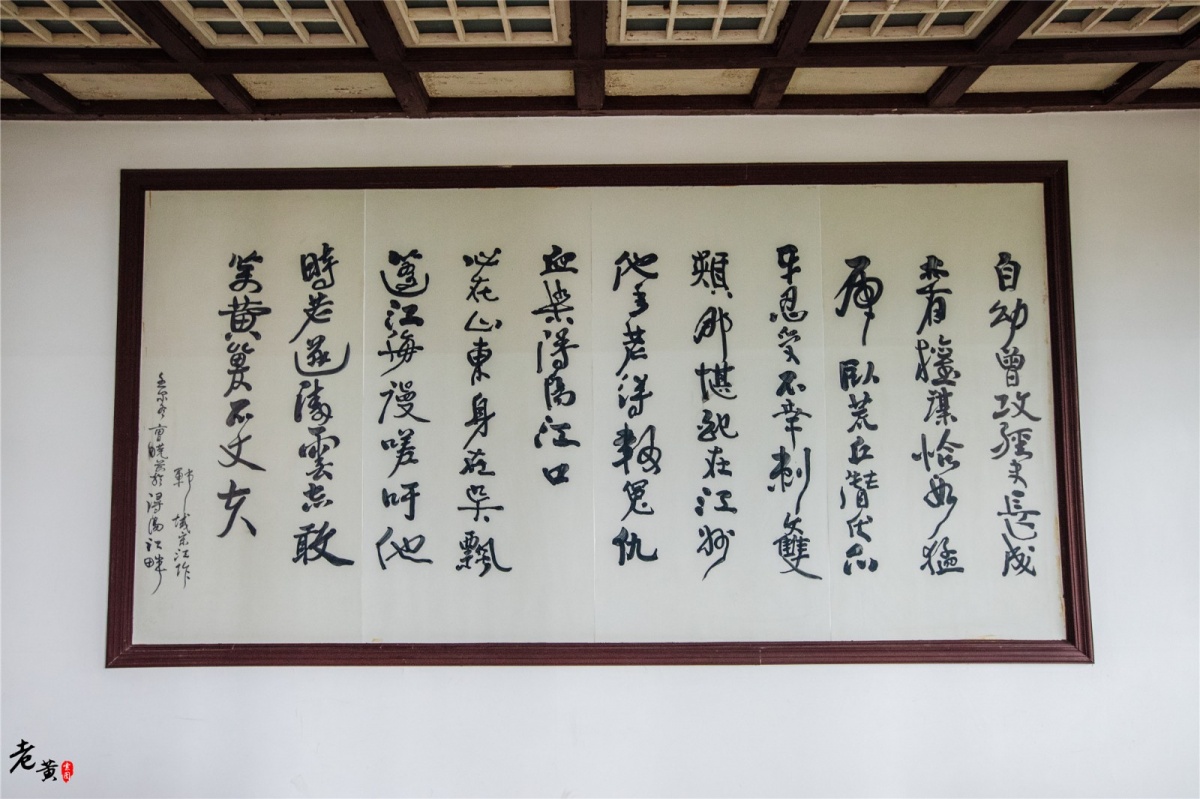 自幼曾攻經史長成
亦有權謀恰如猛
虎臥荒丘潛伏爪
牙忍受不幸刺雙
頰那堪配在江州
他年若得報冤仇
血染潯陽江口
心在山東身在吳飄
蓬江海謾嗟吁他
時若遂凌雲志敢
笑黃巢不丈夫
鄆城宋江作
於潯陽江畔
老黄